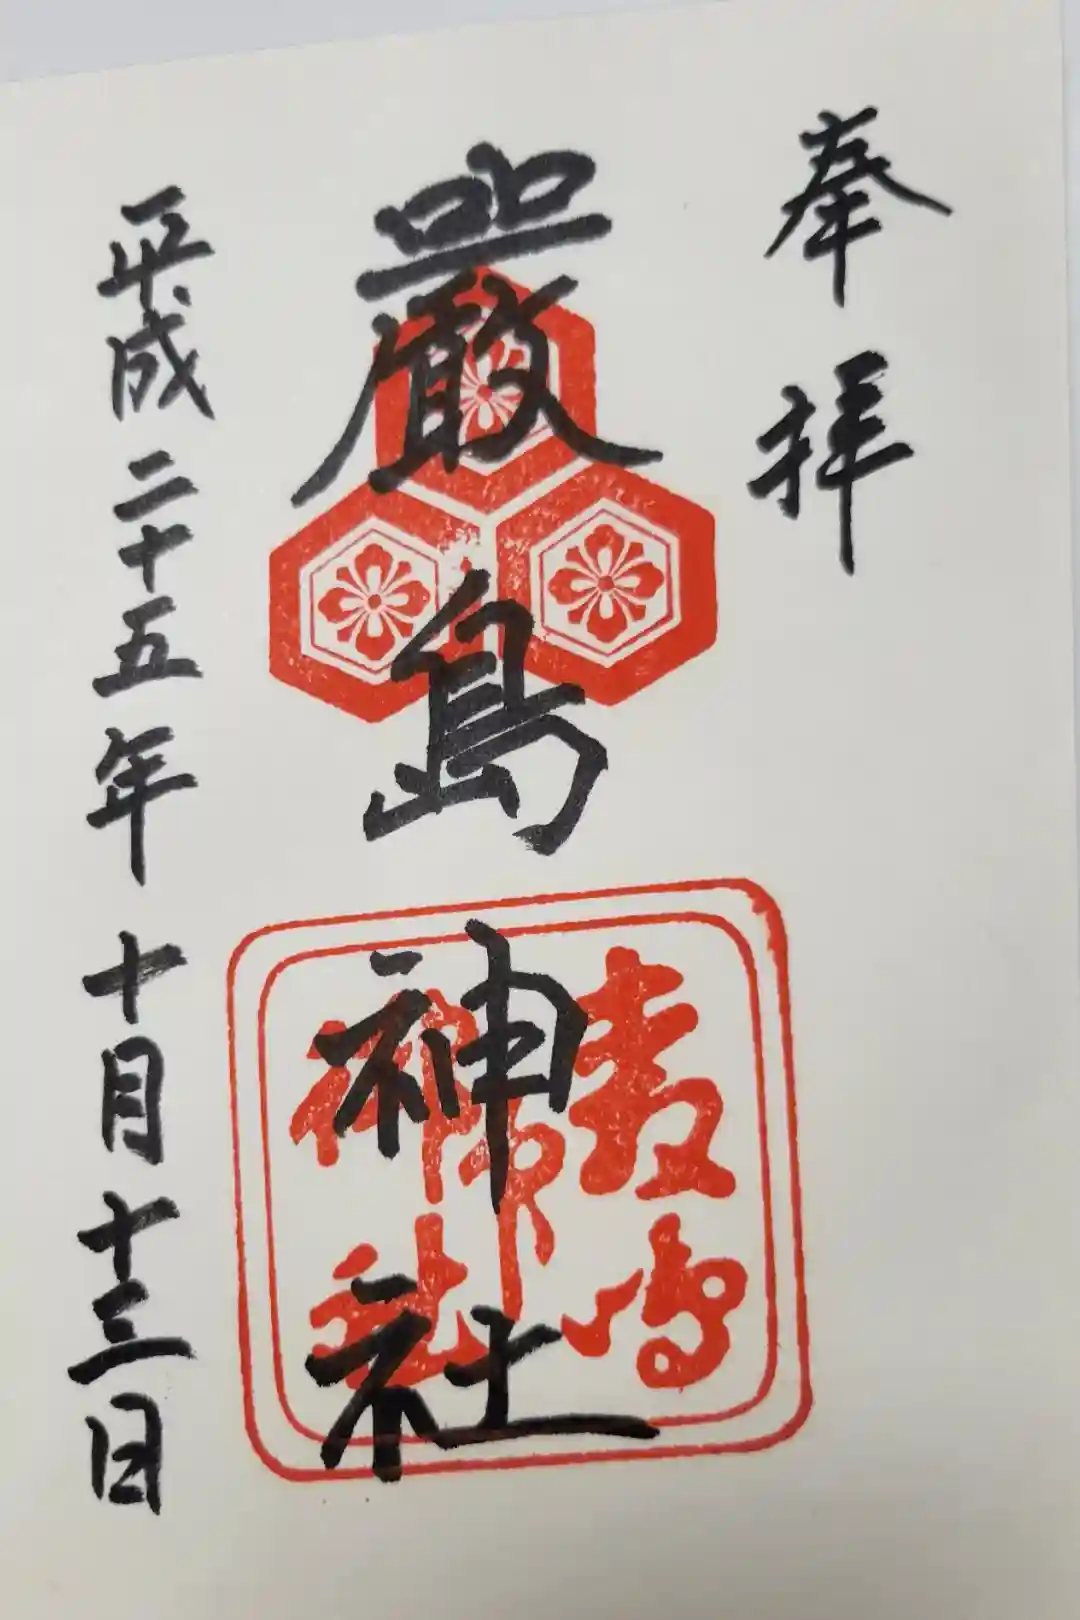 奉拝
嚴島神社
嚴島
神社
平成二十五年十月十三日